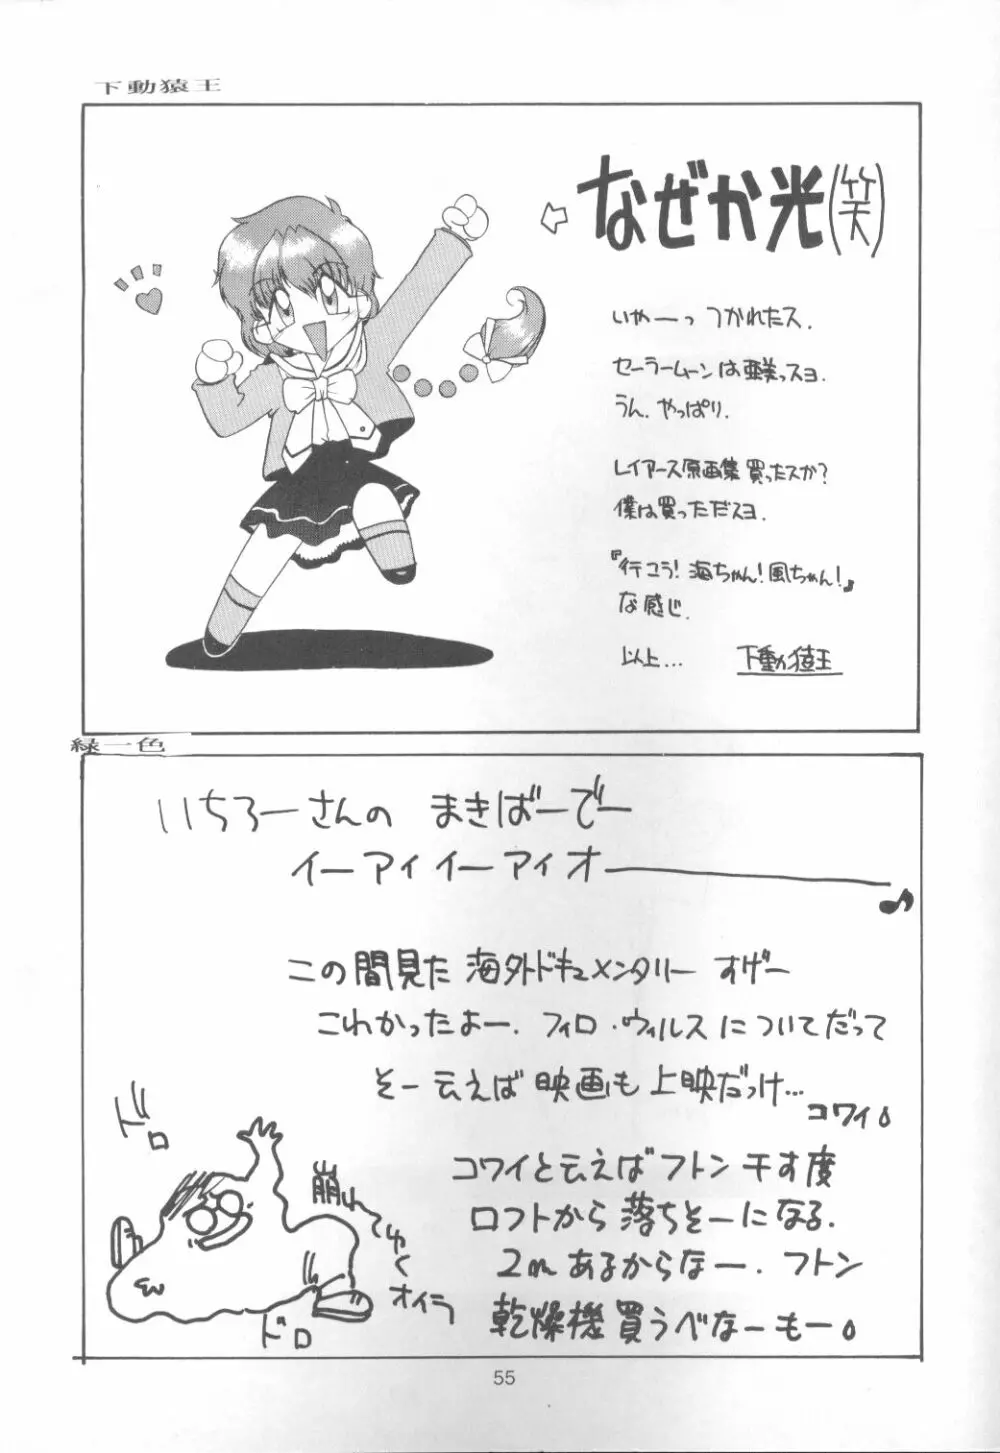 下動猿王
なぜか光(笑)
いやーっ つかれたス.
セーラームーンは亜美っスヨ.
うん. やっぱり.
レイアース原画集 買ったスか?
僕は買っただスヨ.
『行こう! 海ちゃん! 風ちゃん!』
な感じ.
以上... 下動猿王
緑一色
いちろーさんの まきばーでー
イーアイイーアイオー♪
この間見た 海外ドキュメンタリー すげー
こわかったよー. フィロ・ウィルスについてだって
そー云えば 映画も 上映だっけ...
コワイ。
コワイと云えば フトン 干す度
ロフトから 落ちそーになる.
2m あるからなー. フトン
乾燥機 買うべなーもー。
ドロ
崩れてゆく
オイラ
ドロ
55